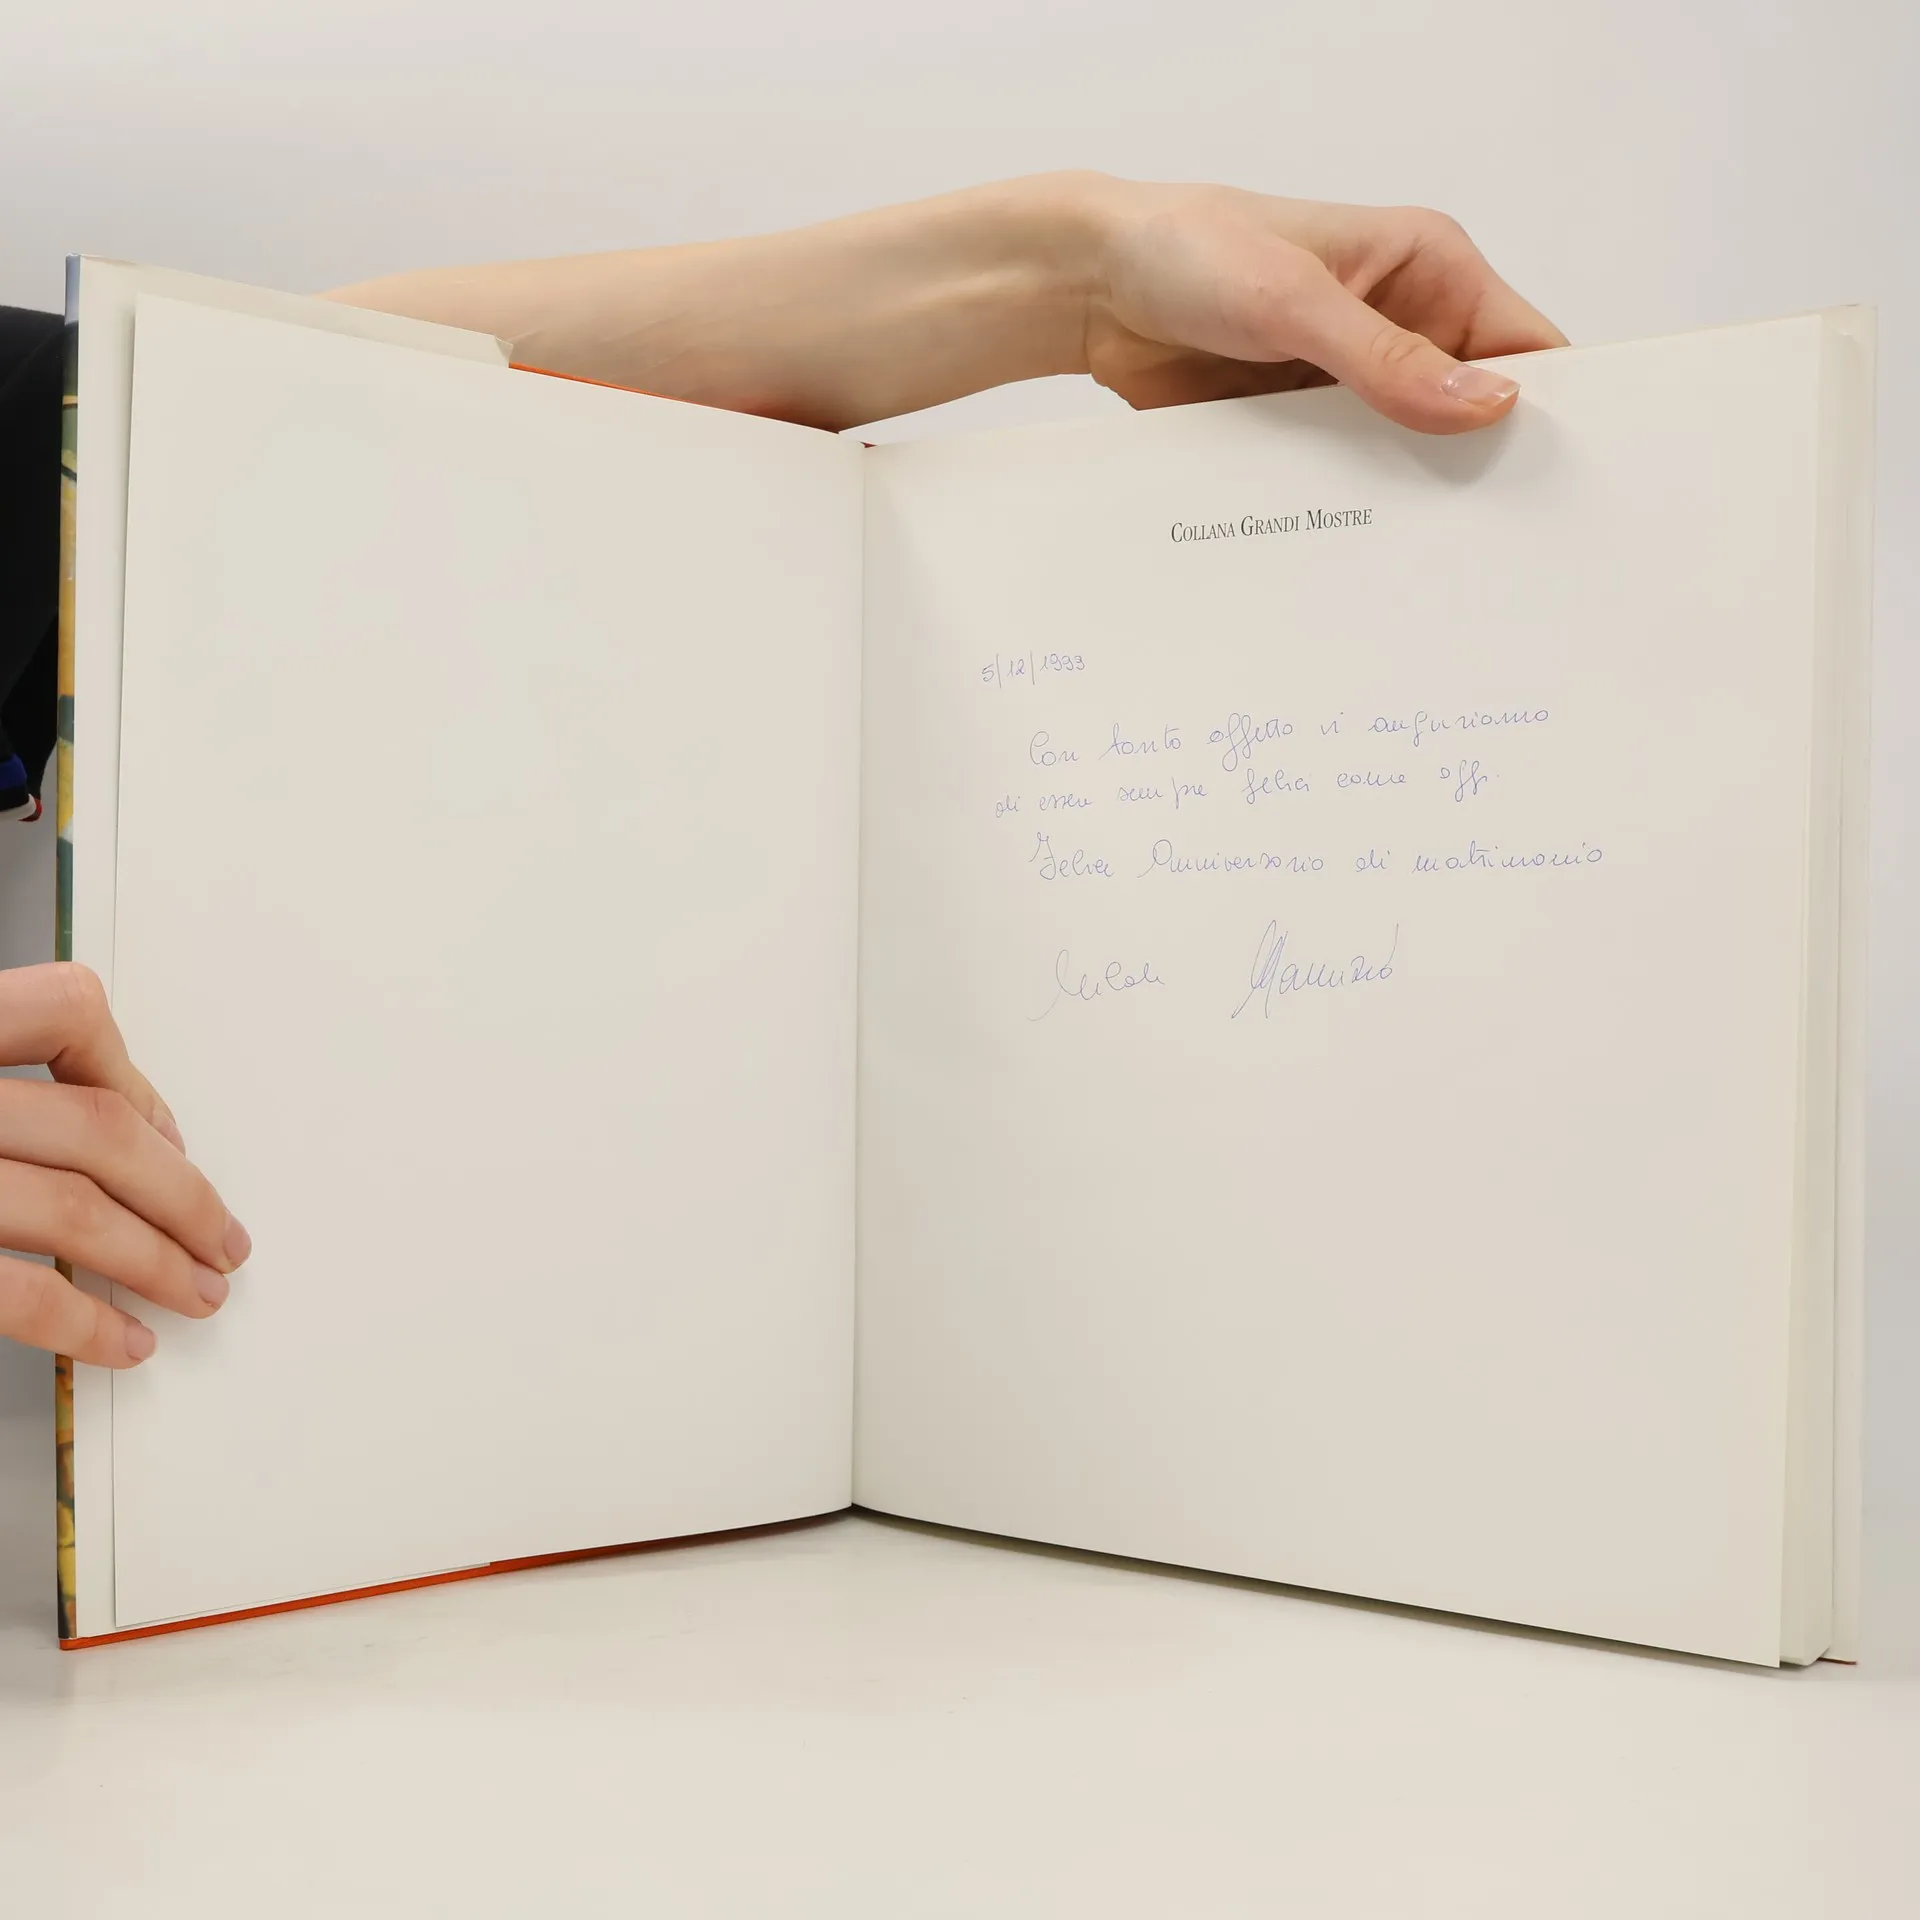 COLLANA GRANDI MOSTRE
5/12/1993
Con tanto affetto vi auguriamo
di essere sempre felici come oggi.
Felice Anniversario di matrimonio
Maurizio